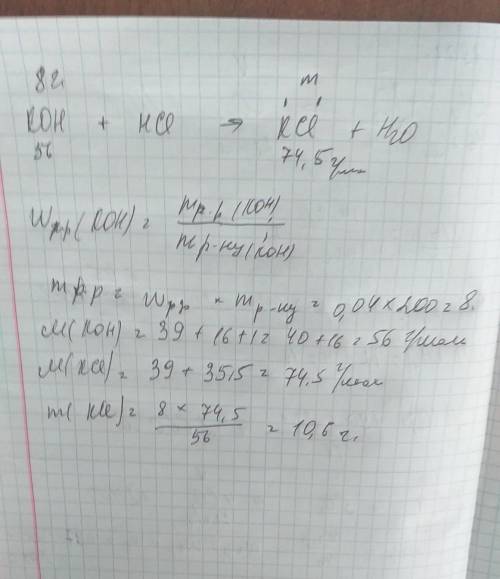 8г. m
KOH + HCl → KCl + H2O
56 74,5 г/моль
Wр.р (KOH) = mр.р (KOH) / mр-ну (KOH)
mр.р = Wрр × mр-ну = 0,04 × 200 = 8.
M(KOH) = 39 + 16 + 1 = 40 + 16 = 56 г/моль
M(KCl) = 39 + 35,5 = 74,5 г/моль
m(KCl) = 8 × 74,5 / 56 = 10,6 г.